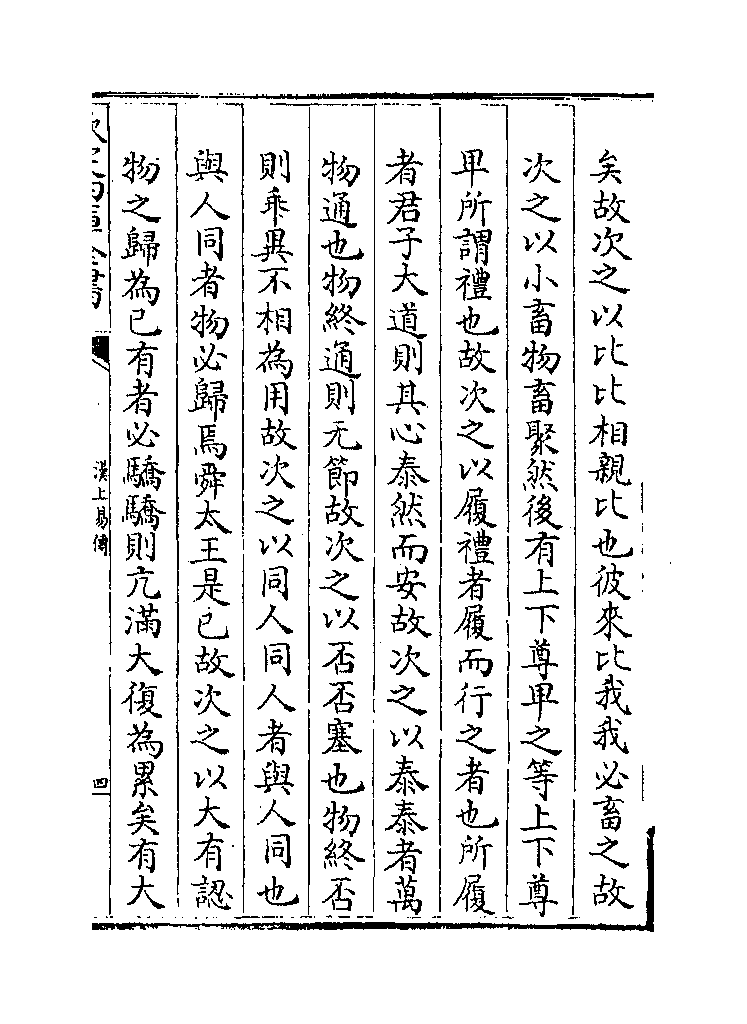 矣故次之以比比相親比也彼來比我我必畜之故
次之以小畜物畜聚然後有上下尊卑之等上下尊
卑所謂禮也故次之以履禮者履而行之者也所履
者君子大道則其心泰然而安故次之以泰泰者萬
物通也物終通則无節故次之以否否塞也物終否
則乖異不相為用故次之以同人同人者與人同也
與人同者物必歸焉舜太王是已故次之以大有認
物之歸為已有者必驕驕則亢滿大復為累矣有大
欽定四庫全書
漢上易傳
四